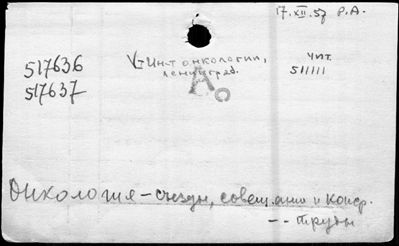 17.XII.57 Р.А.
517636
517637
Ин-т онкологии,
Ленинград.
Чит.
511111
До
Онкология – съезды, совещания и конфр.
-- труды